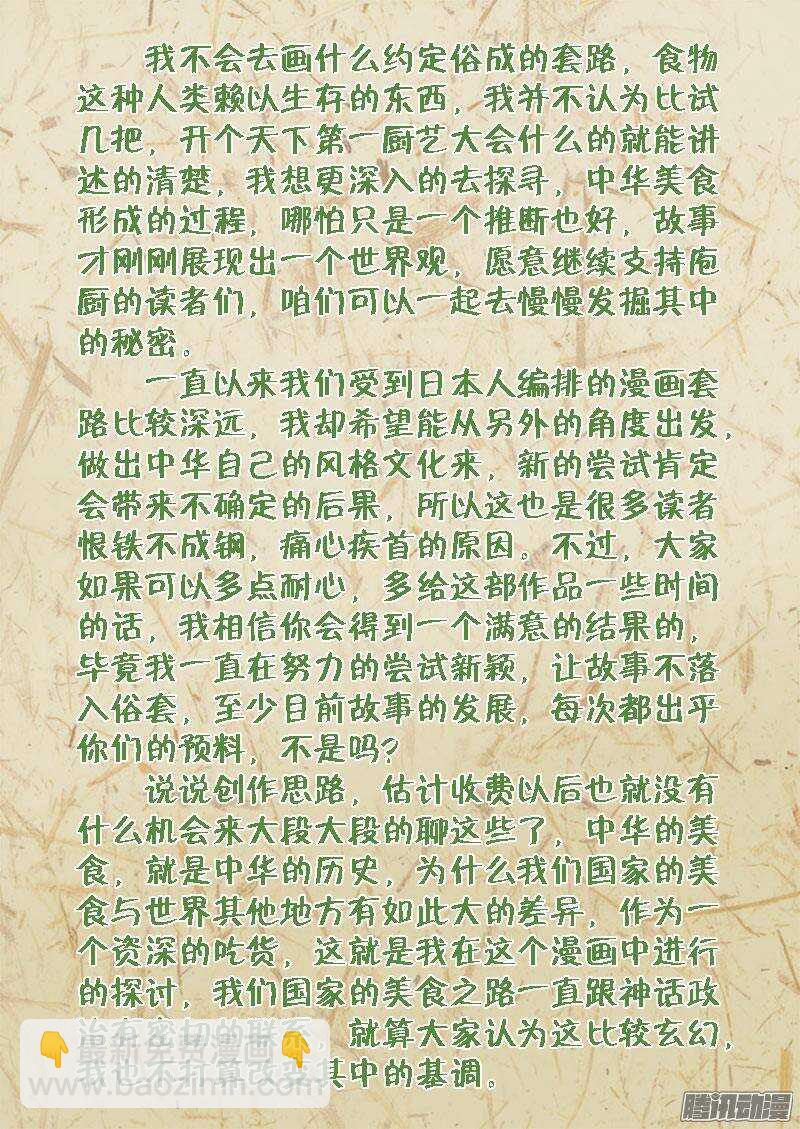 我不会去画什么约定俗成的套路，食物
这种人类赖以生存的东西，我并不认为比试
几把，开个天下第一厨艺大会什么的就能讲
述的清楚，我想更深入的去探寻，中华美食
形成的过程，哪怕只是一个推断也好，故事
才刚刚展现出一个世界观，愿意继续支持庖
厨的读者们，咱们可以一起去慢慢发掘其中
的秘密。
一直以来我们受到日本人编排的漫画套
路比较深远，我却希望能从另外的角度出发，
做出中华自己的风格文化来，新的尝试肯定
会带来不确定的后果，所以这也是很多读者
恨铁不成钢，痛心疾首的原因。不过，大家
如果可以多点耐心，多给这部作品一些时间
的话，我相信你会得到一个满意的结果的，
毕竟我一直在努力的尝试新颖，让故事不落
入俗套，至少目前故事的发展，每次都出乎
你们的预料，不是吗？
说说创作思路，估计收费以后也就没有
什么机会来大段大段的聊这些了，中华的美
食，就是中华的历史，为什么我们国家的美
食与世界其他地方有如此大的差异，作为一
个资深的吃货，这就是我在这个漫画中进行
的探讨，我们国家的美食之路一直跟神话政
治有密切的联系，就算大家认为这比较玄幻，
我也不打算改变其中的基调。
最新免费漫画
www.baozimh.com
腾讯动漫